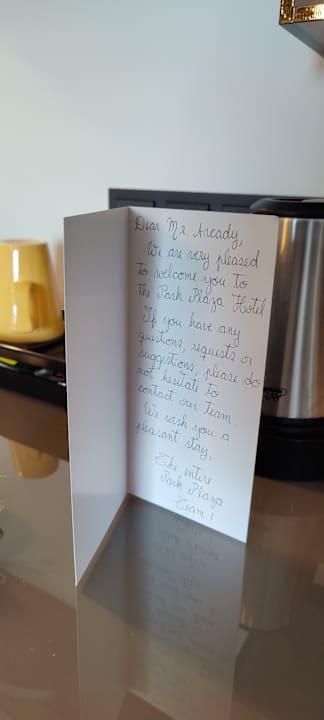 Dear Mr Arcady,
We are very pleased
to welcome you to
the Park Plaza Hotel
If you have any
questions, requests or
suggestions, please do
not hesitate to
contact our team
We wish you a
pleasant stay,
The entire
Park Plaza
Team!